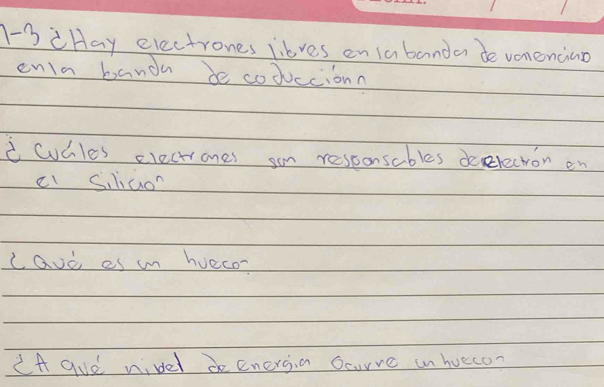 1-3 ¿Hay electrones libres en la banda de valencia o
en la banda de coducción?
¿Cuáles electrones son responsables de electrón en
el Silicio?
¿Qué es un hueco?
¿A qué nivel de energia Ocurre un hueco?